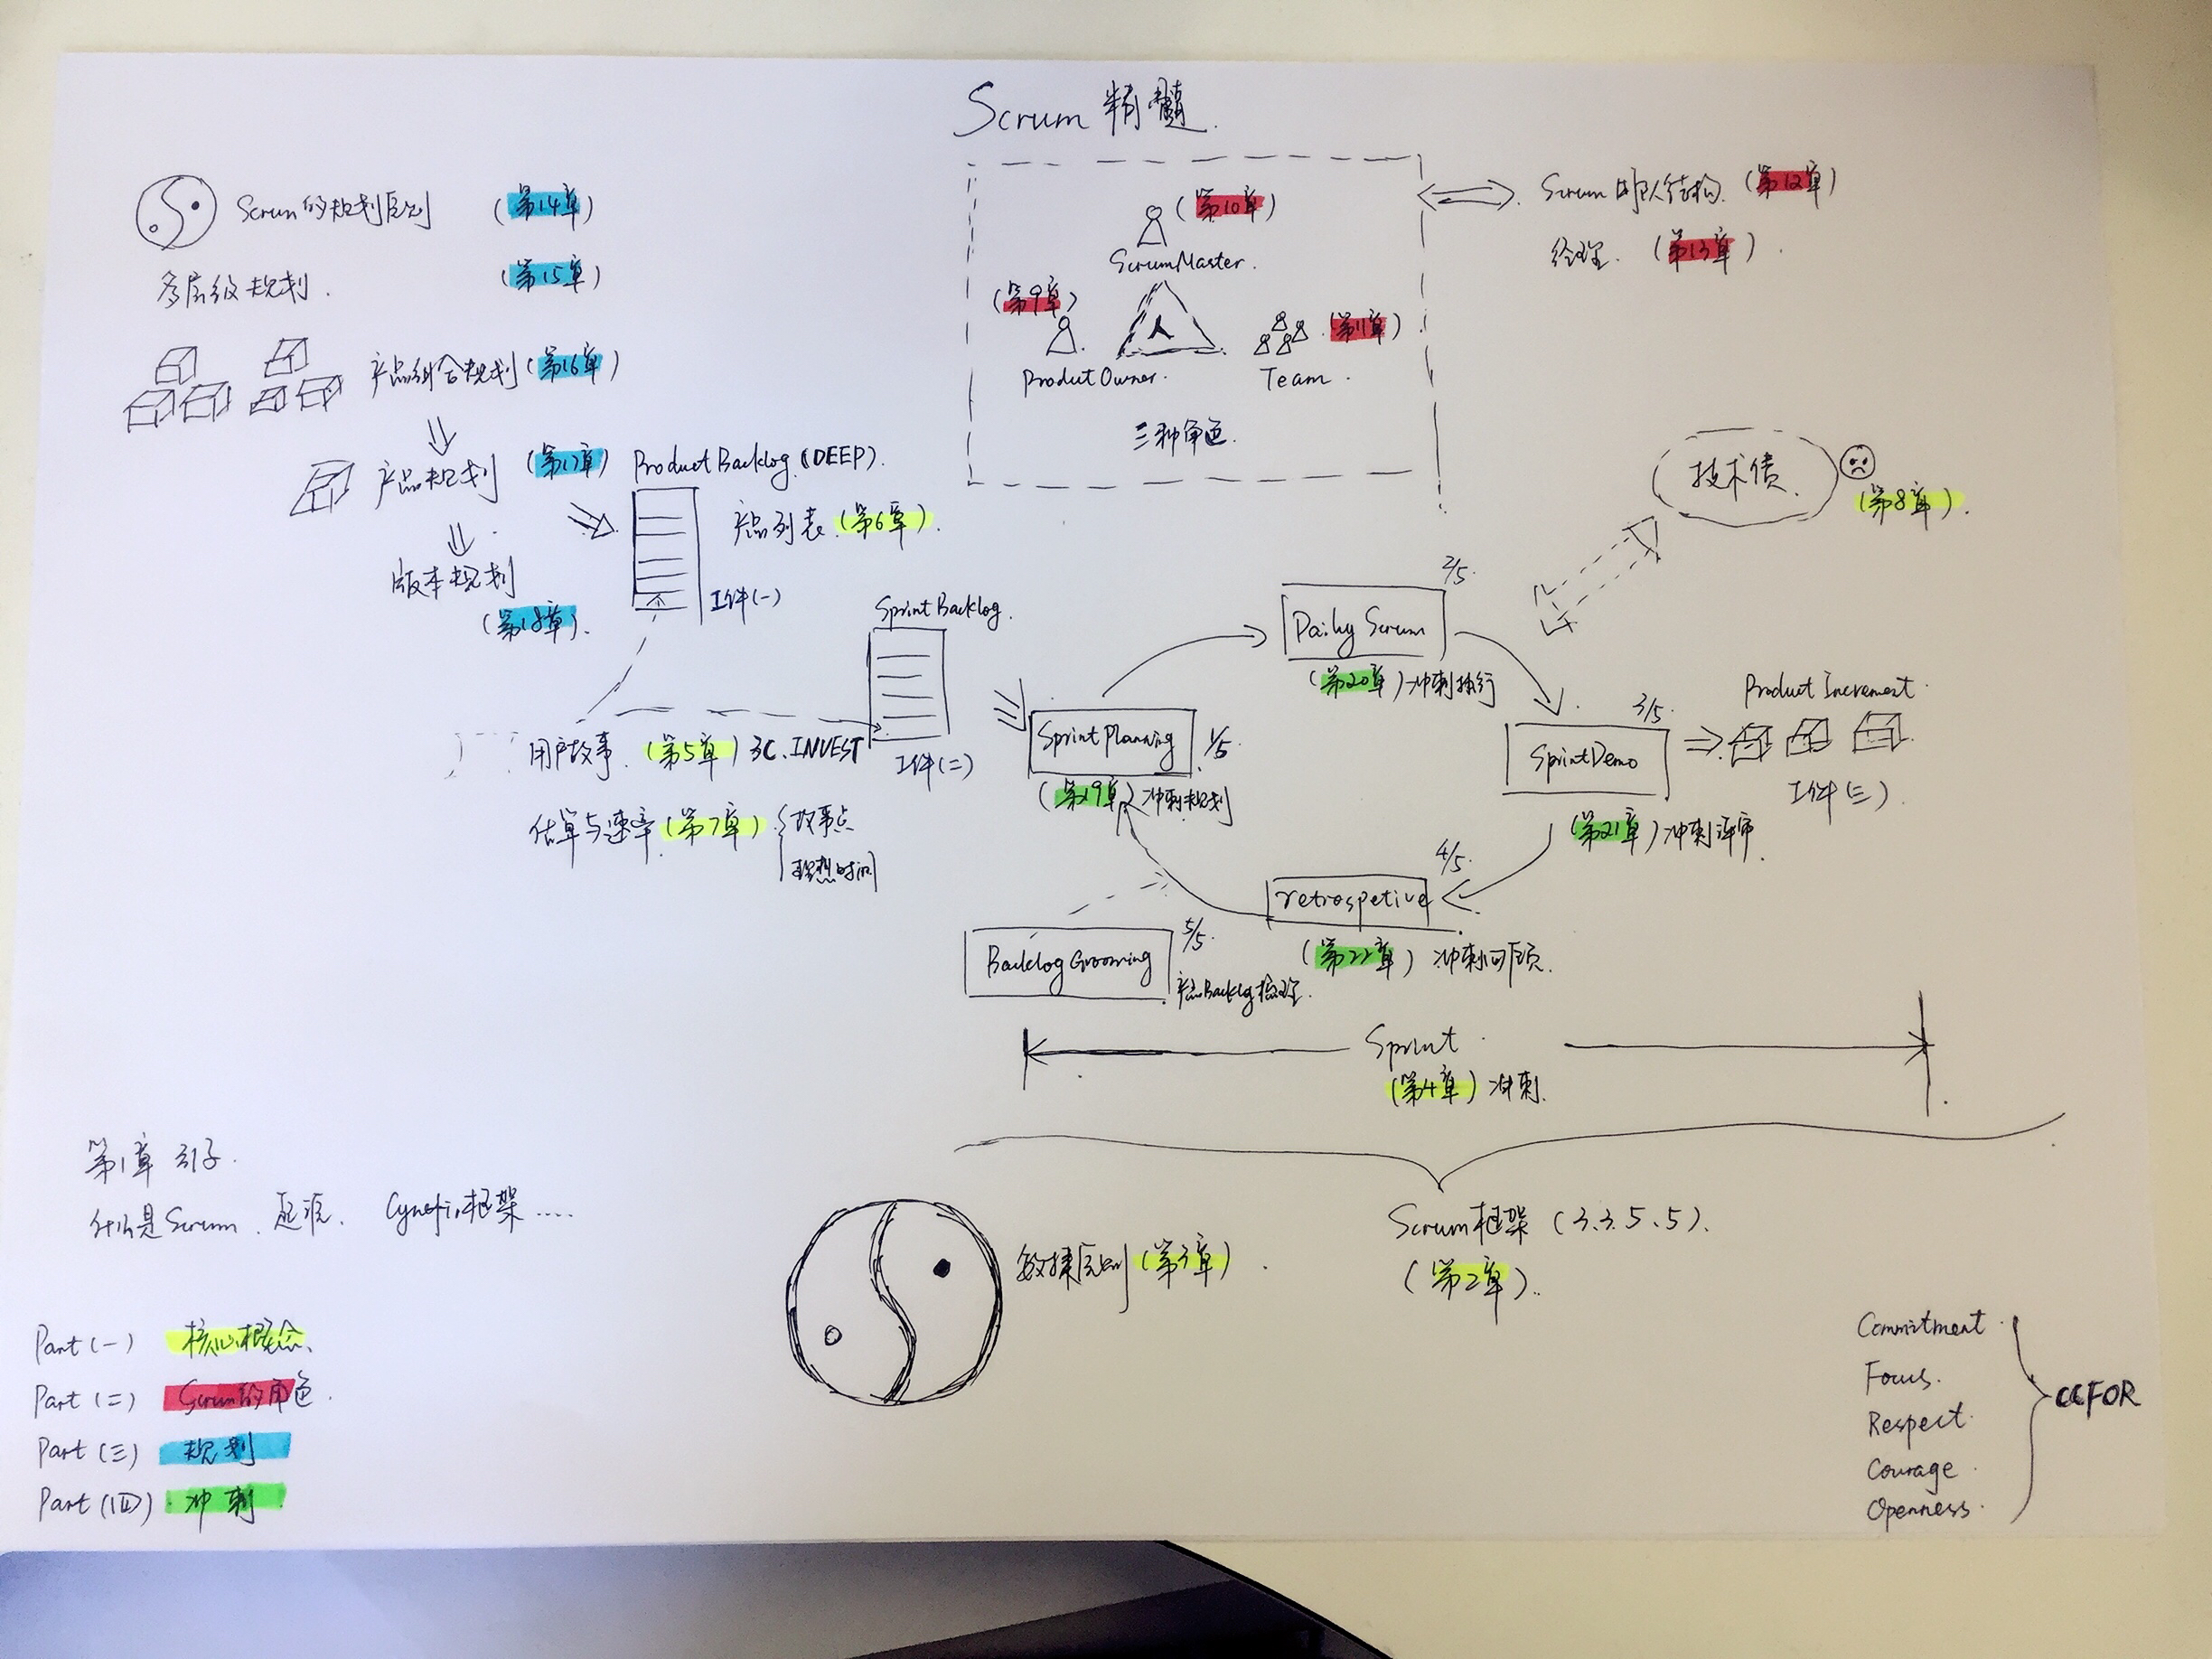 Scrum 精髓.
Scrum的规划原则 (第14章)
多层级规划. (第15章)
产品组合规划 (第16章)
产品规划 (第17章)
版本规划
(第18章).
Product Backlog (DEEP).
产品列表 (第6章).
工件(一)
Sprint Backlog.
工件(二)
用户故事. (第5章) 3C、INVEST
估算与速率 (第7章)
故事点
理想时间
(第10章)
ScrumMaster.
(第9章)
ProdutOwner.
(第11章)
Team.
三种角色.
Scrum团队结构. (第12章)
经理. (第13章).
技术债.
(第8章).
Sprint Planning 1/5.
(第19章) 冲刺规划
2/5.
Daily Scrum
(第20章) 冲刺执行
3/5.
SprintDemo
(第21章) 冲刺评审.
Product Increment.
工件(三).
4/5.
retrospetive
(第22章) 冲刺回顾.
5/5.
Backlog Grooming
产品Backlog梳理.
Sprint.
(第4章) 冲刺.
Scrum框架 (3、3、5、5).
(第2章).
敏捷原则 (第3章).
第1章 引子.
什么是Scrum、起源、Cynefin框架.....
Part (一) 核心概念、
Part (二) Scrum的角色.
Part (三) 规划
Part (四) 冲刺
Commitment.
Focus.
Respect.
Courage.
Openness.
CCFOR